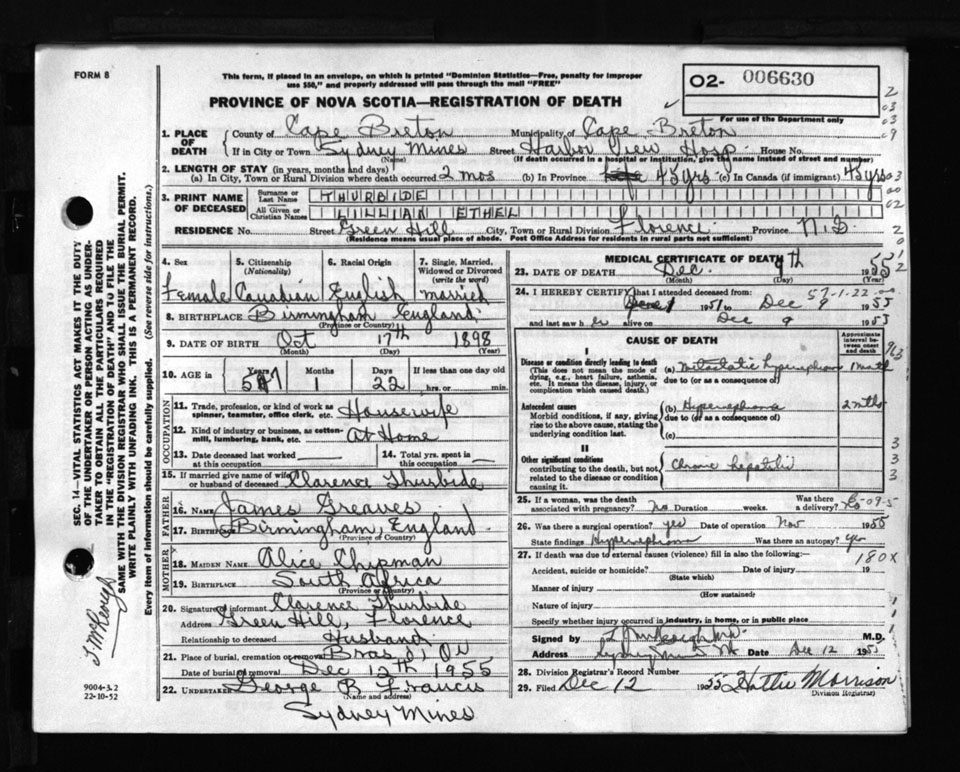 FORM 8
This form, if placed in an envelope, on which is printed "Dominion Statistics—Free, penalty for improper
use $50," and properly addressed will pass through the mail "FREE"
O2- 006630
For use of the Department only
PROVINCE OF NOVA SCOTIA—REGISTRATION OF DEATH
1. PLACE OF DEATH County of Cape Breton Municipality of Cape Breton
If in City or Town Sydney Mines Street Harbor View Hosp House No.
(Name) (If death occurred in a hospital or institution, give the name instead of street and number)
2. LENGTH OF STAY (in years, months and days)
(a) In City, Town or Rural Division where death occurred 2 mos (b) In Province 45 yrs (c) In Canada (if immigrant) 45 yrs
3. PRINT NAME OF DECEASED Surname or Last Name THURBIDE
All Given or Christian Names LILLIAN ETHEL
RESIDENCE No. Street Green Hill City, Town or Rural Division Florence Province N.S.
(Residence means usual place of abode. Post Office Address for residents in rural parts not sufficient)
4. Sex 5. Citizenship (Nationality) 6. Racial Origin 7. Single, Married, Widowed or Divorced (write the word)
Female Canadian English married
8. BIRTHPLACE Birmingham England
(Province or Country)
9. DATE OF BIRTH Oct 17th 1898
(Month) (Day) (Year)
10. AGE in Years Months Days If less than one day
57 1 22 hrs. or min.
OCCUPATION
11. Trade, profession, or kind of work as spinner, teamster, office clerk, etc. Housewife
12. Kind of industry or business, as cotton-mill, lumbering, bank, etc. At Home
13. Date deceased last worked at this occupation —
14. Total yrs. spent in this occupation —
15. If married give name of wife or husband of deceased Clarence Thurbide
FATHER
16. Name James Greaves
17. Birthplace Birmingham, England
(Province or Country)
MOTHER
18. Maiden Name Alice Chipman
19. Birthplace South Africa
(Province or Country)
20. Signature of informant Clarence Thurbide
Address Green Hill, Florence
Relationship to deceased Husband
21. Place of burial, cremation or removal Bras d'Or
Date of burial or removal Dec 12th 1955
22. Undertaker George B Francis
(Name and address)
Sydney Mines
MEDICAL CERTIFICATE OF DEATH
23. DATE OF DEATH Dec. 9th 1955
(Month) (Day) (Year)
24. I HEREBY CERTIFY that I attended deceased from
1951 to Dec 9 1955
and last saw her alive on Dec 9 1955
57-1-22
CAUSE OF DEATH
Approximate interval between onset and death
I
Disease or condition directly leading to death
(This does not mean the mode of dying, e.g., heart failure, asthenia, etc. It means the disease, injury, or complication which caused death.)
(a) Metastatic hypernephroma 1 month
due to (or as a consequence of)
Antecedent causes
Morbid conditions, if any, giving rise to the above cause, stating the underlying condition last.
(b) Hypernephroma 2 mths
due to (or as a consequence of)
(c)
II
Other significant conditions
contributing to the death, but not related to the disease or condition causing it.
Chronic hepatitis
25. If a woman, was the death associated with pregnancy? No Duration weeks. Was there a delivery?
26. Was there a surgical operation? yes Date of operation Nov 1955
State findings Hypernephroma Was there an autopsy? yes
27. If death was due to external causes (violence) fill in also the following:—
180X
Accident, suicide or homicide? Date of injury 19
(State which)
Manner of injury
(How sustained)
Nature of injury
Specify whether injury occurred in industry, in home, or in public place
Signed by M.D.
Address Sydney Mines Date Dec 12 1955
28. Division Registrar's Record Number
29. Filed Dec 12 1955 Hattie Morrison
Division Registrar
SEC. 14—VITAL STATISTICS ACT MAKES IT THE DUTY
OF THE UNDERTAKER OR PERSON ACTING AS UNDER-
TAKER TO OBTAIN ALL THE PARTICULARS REQUIRED
IN THE "REGISTRATION OF DEATH" AND TO FILE THE
SAME WITH THE DIVISION REGISTRAR WHO SHALL ISSUE THE BURIAL PERMIT.
WRITE PLAINLY WITH UNFADING INK. THIS IS A PERMANENT RECORD.
Every item of information should be carefully supplied. (See reverse side for instructions.)
9004-3.2
22-10-52